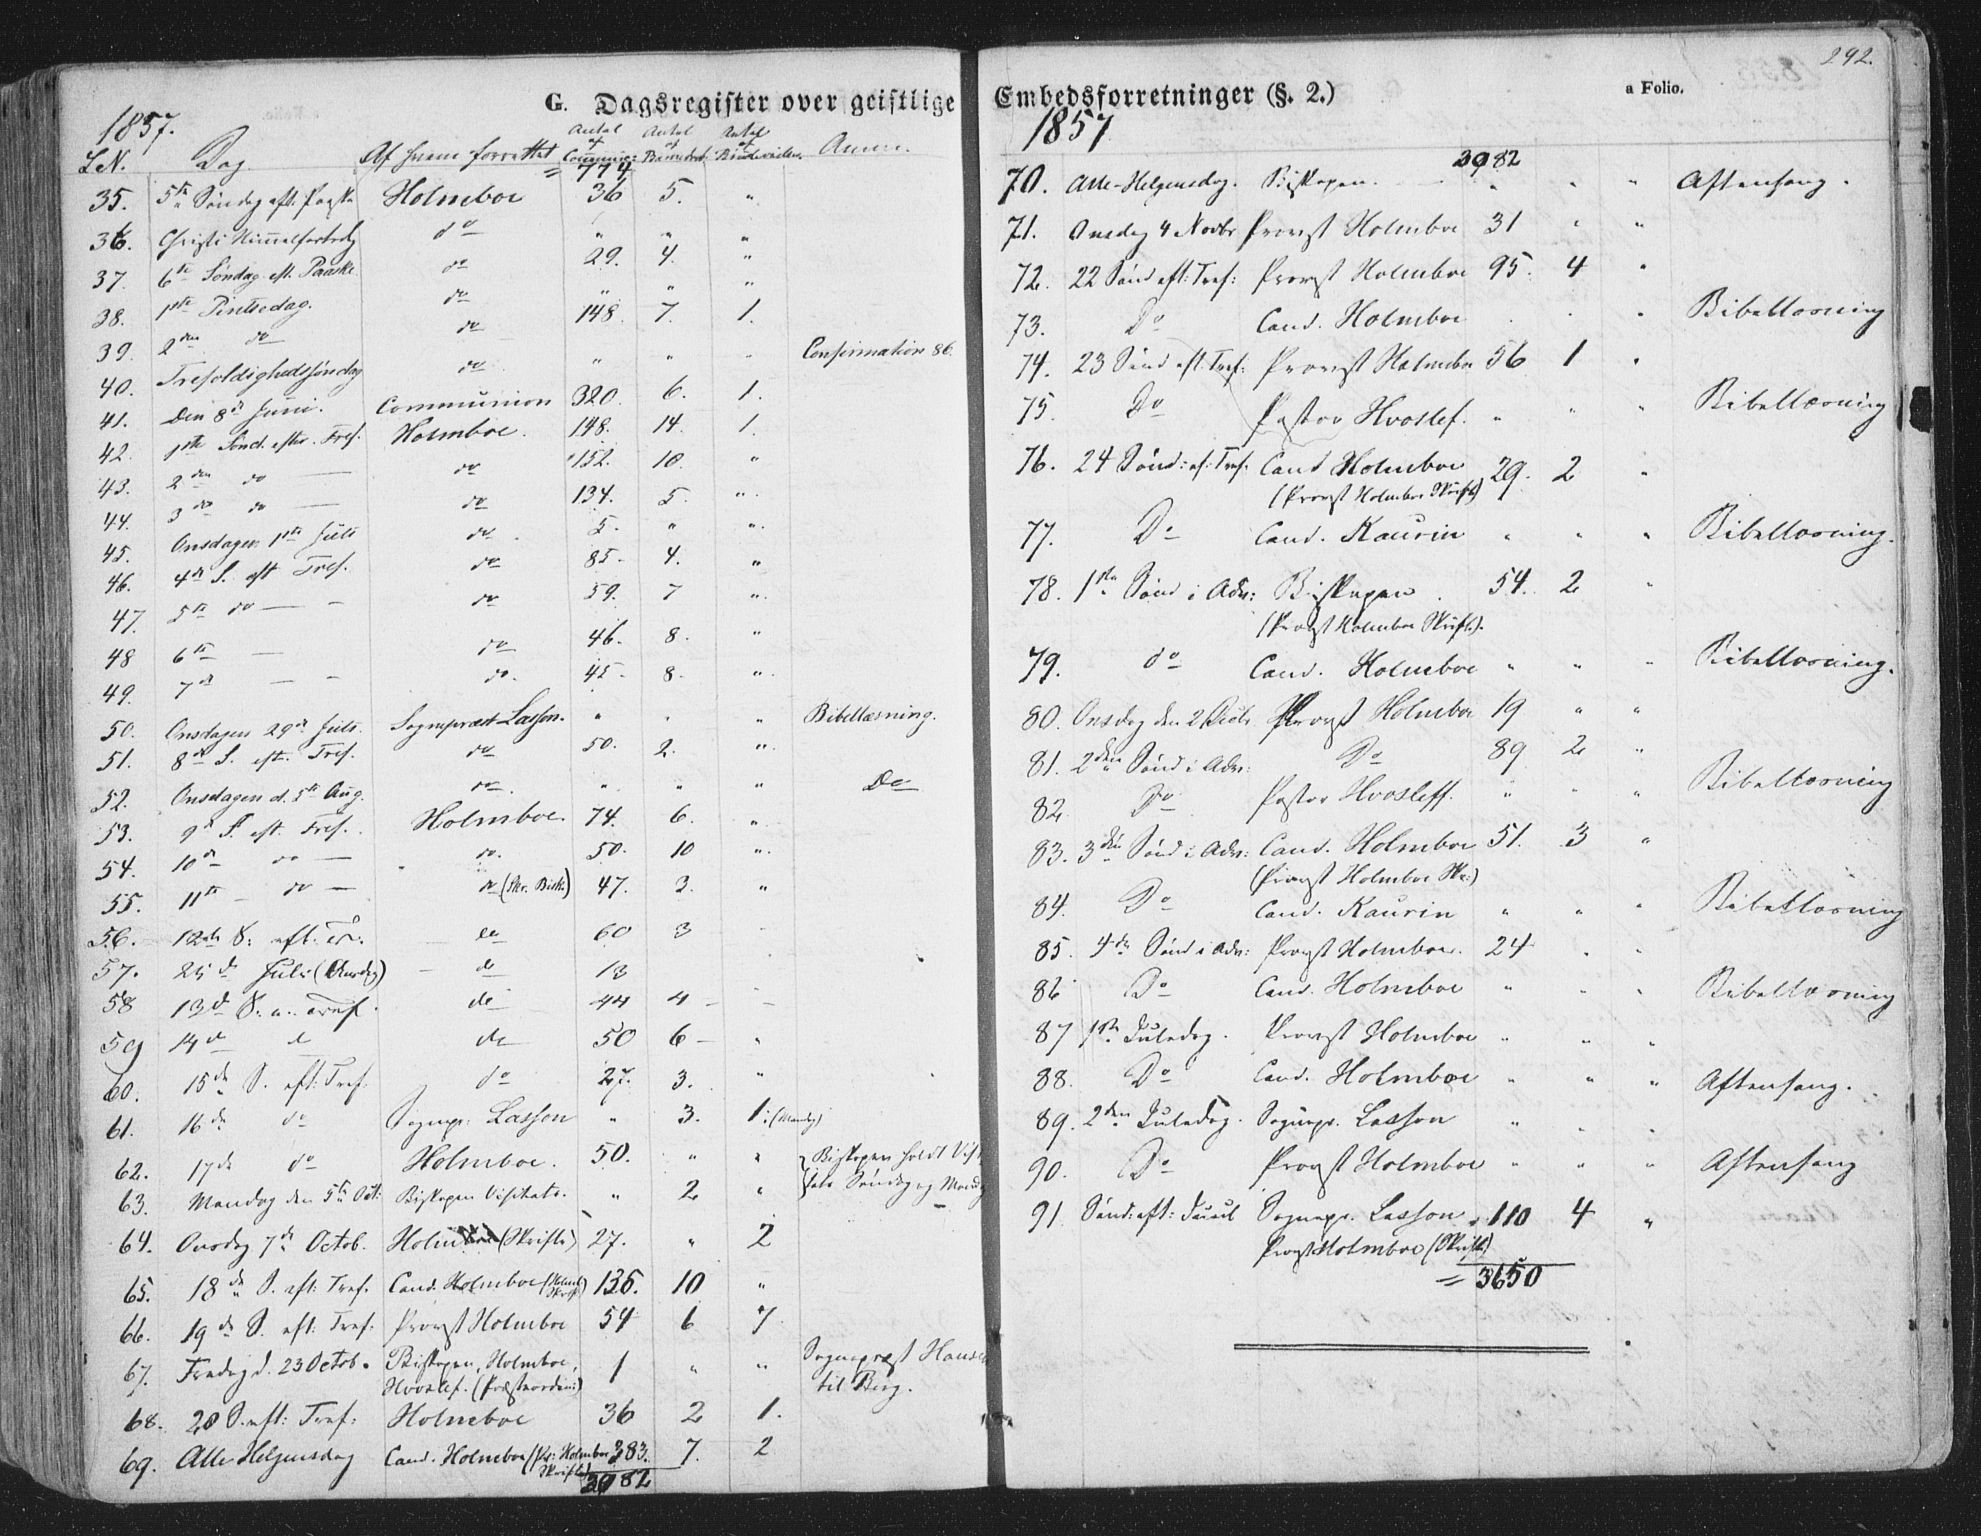 292.
G. Dagsregister over geistlige Embedsforretninger (§. 2.)
a Folio.
1857.
L.N. Dag Af hvem forrettet Antal af Communic: Antal af Barnedaab Antal af Brudevielser Anm.
= 774
35. 5te Søndag eft. Paaske Holmboe 36 5. "
36. Christi Himmelfartsdag do " " "
37. 6te Søndag eft. Paaske do 29. 4. "
38. 1ste Pintsedag. do " " "
39. 2den do do 148. 7. 1.
40. Trefoldighedssøndag do " " " Confirmation 86.
41. Den 8de Juni. Communion 320. 6. 1.
42. 1ste Sønd. efter Tref. Holmboe. 148. 14. 1.
43. 2den do — do 152. 10. "
44. 3die do — do 134. 5. "
45. Onsdagen 1ste Juli do 5. " "
46. 4de S. eft Tref. do 85. 4. "
47. 5te do — do 59. 7 "
48 6te — do 46. 8. "
49. 7de — — do. 45. 8. "
50. Onsdagen 29de Juli. Sognepræst Lasson. " " " Bibellæsning.
51. 8de S. eft. Tref. do 50. 2. "
52. Onsdagen d. 5te Aug. do. " " " Do
53. 9de S. eft. Tref. Holmboe. 74. 6. "
54. 10de do — do. 50. 10 "
55. 11te — do — do (Skr. Bisk.) 47. 3. "
56. 12te S. eft. Tr. — do 60 3 -
57. 25de Juli (Onsdag) — do 13
58 13de S. e. Tref. do 44 4 — —
59 14de d do 50 6 — "
60. 15de S. eft: Tref. do 27. 3. "
61. 16de do Sognepr: Lasson " 3. 1. (Mandag)
62. 17de do Holmboe. 50. " " Bispopen holdt Visi-
63. Mandag den 5te Oct: Biskopen Visitats. " 2 " tats Søndag og Mandag
64. Onsdag 7de Octob. Holmboe (Skrifte) 27. " 2
65. 18de S. eft: Tref. Cand. Holmboe (Holmb. Skrift) 136. 10 "
66. 19de S. eft: Tref. Provst Holmboe 54 6 7
67. Fredag d. 23 Octob. Biskopen, Holmboe, 1 " " Sognepræst Hansen
Hvoslef. (Præsteordin:) til Berg.
68. 20 S. eft: Tref: Holmboe 36 2 1.
69. Alle Helgensdag Cand. Holmboe (Pr: Holmboe 383. 7. 2
Skrifted)
3082
1857
3082
70. Alle-Helgensdag. Biskopen. " " " Aftensang.
71. Onsdag 4 Novbr Provst Holmboe 31 " "
72. 22 Sønd eft: Tref: Provst Holmboe 95. 4 "
73. Do Cand. Holmboe " " " Bibellæsning
74. 23 Sønd eft: Tref: Provst Holmboe 56 1 "
75. Do Pastor Hvoslef. " " " Bibellæsning
76. 24 Sønd: ef: Tref. Cand Holmboe 29. 2 "
(Provst Holmboe Skrift)
77. Do Cand. Kaurin " " " Bibellæsning.
78. 1ste Sønd i Adv: Biskopen. 54. 2 "
(Provst Holmboe Skrift.).
79. do Cand. Holmboe " " " Bibellæsning.
80. Onsdag den 2 Decbr Provst Holmboe 19 " "
81. 2den Sønd i Adv: Do 89 2 "
82 Do Pastor Hvosleff. " " " Bibellæsning
83. 3die Sønd i Adv: Cand. Holmboe 51. 3 "
(Provst Holmboe Skr:)
84. Do Cand. Kaurin " " " Bibellæsning
85. 4de Sønd i Adv: Provst Holmboe. 24 " "
86 Do Cand. Holmboe " " " Bibellæsning
87 1ste Juledag. Provst Holmboe " " "
88. Do Cand. Holmboe " " " Aftensang.
89. 2den Juledag. Sognepr. Lasson " " "
90. Do Provst Holmboe " " " Aftensang
91. Sønd: eft: Juul Sognepr. Lasson 110 4 "
Provst Holmboe (Skrift.)
= 3650